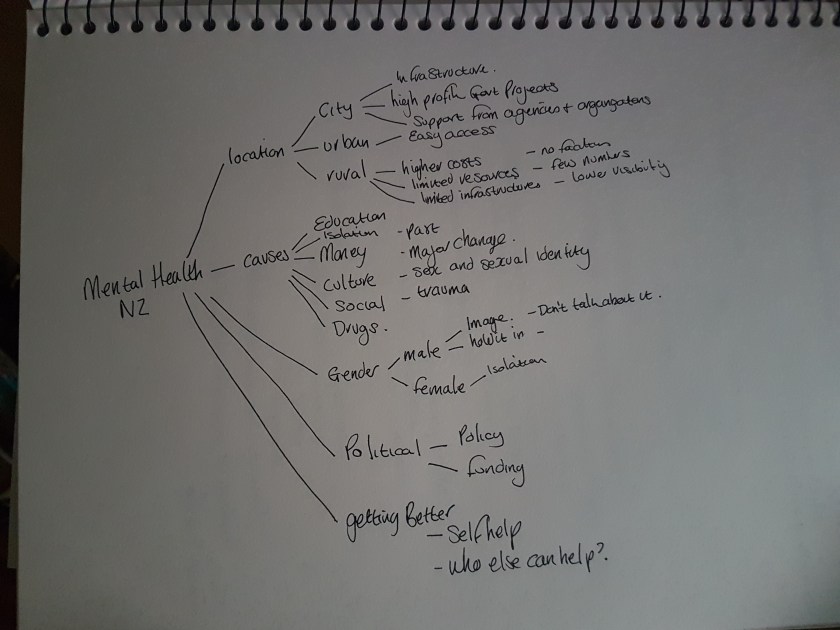 Infrastructure.
City
high profile Govt Projects
Support from agencies + organgatons
urban
Easy access
location
rural
higher costs
- no
limited resources - few numbers
limited infrastructures - lower visibility
Education
Isolation - part
causes
Money - Major change.
Culture - sex and sexual identity
Social - trauma
Drugs.
Mental Health
NZ
Gender
male
Image. - Don't talk about it.
hold it in -
female
Isolation
Political
Policy
funding
getting Better
- Self help
- who else can help?